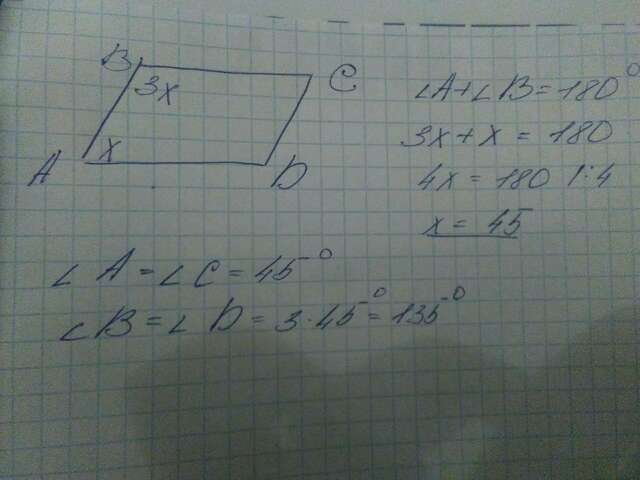 B
C
3x
A
x
D
∠A+∠B=180°
3x+x=180
4x=180 |:4
x=45
∠A=∠C=45°
∠B=∠D=3·45°=135°